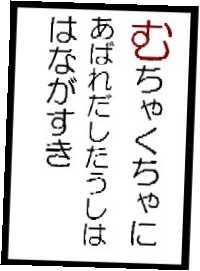 むちゃくちゃに
あばれだしたうしは
はながすき